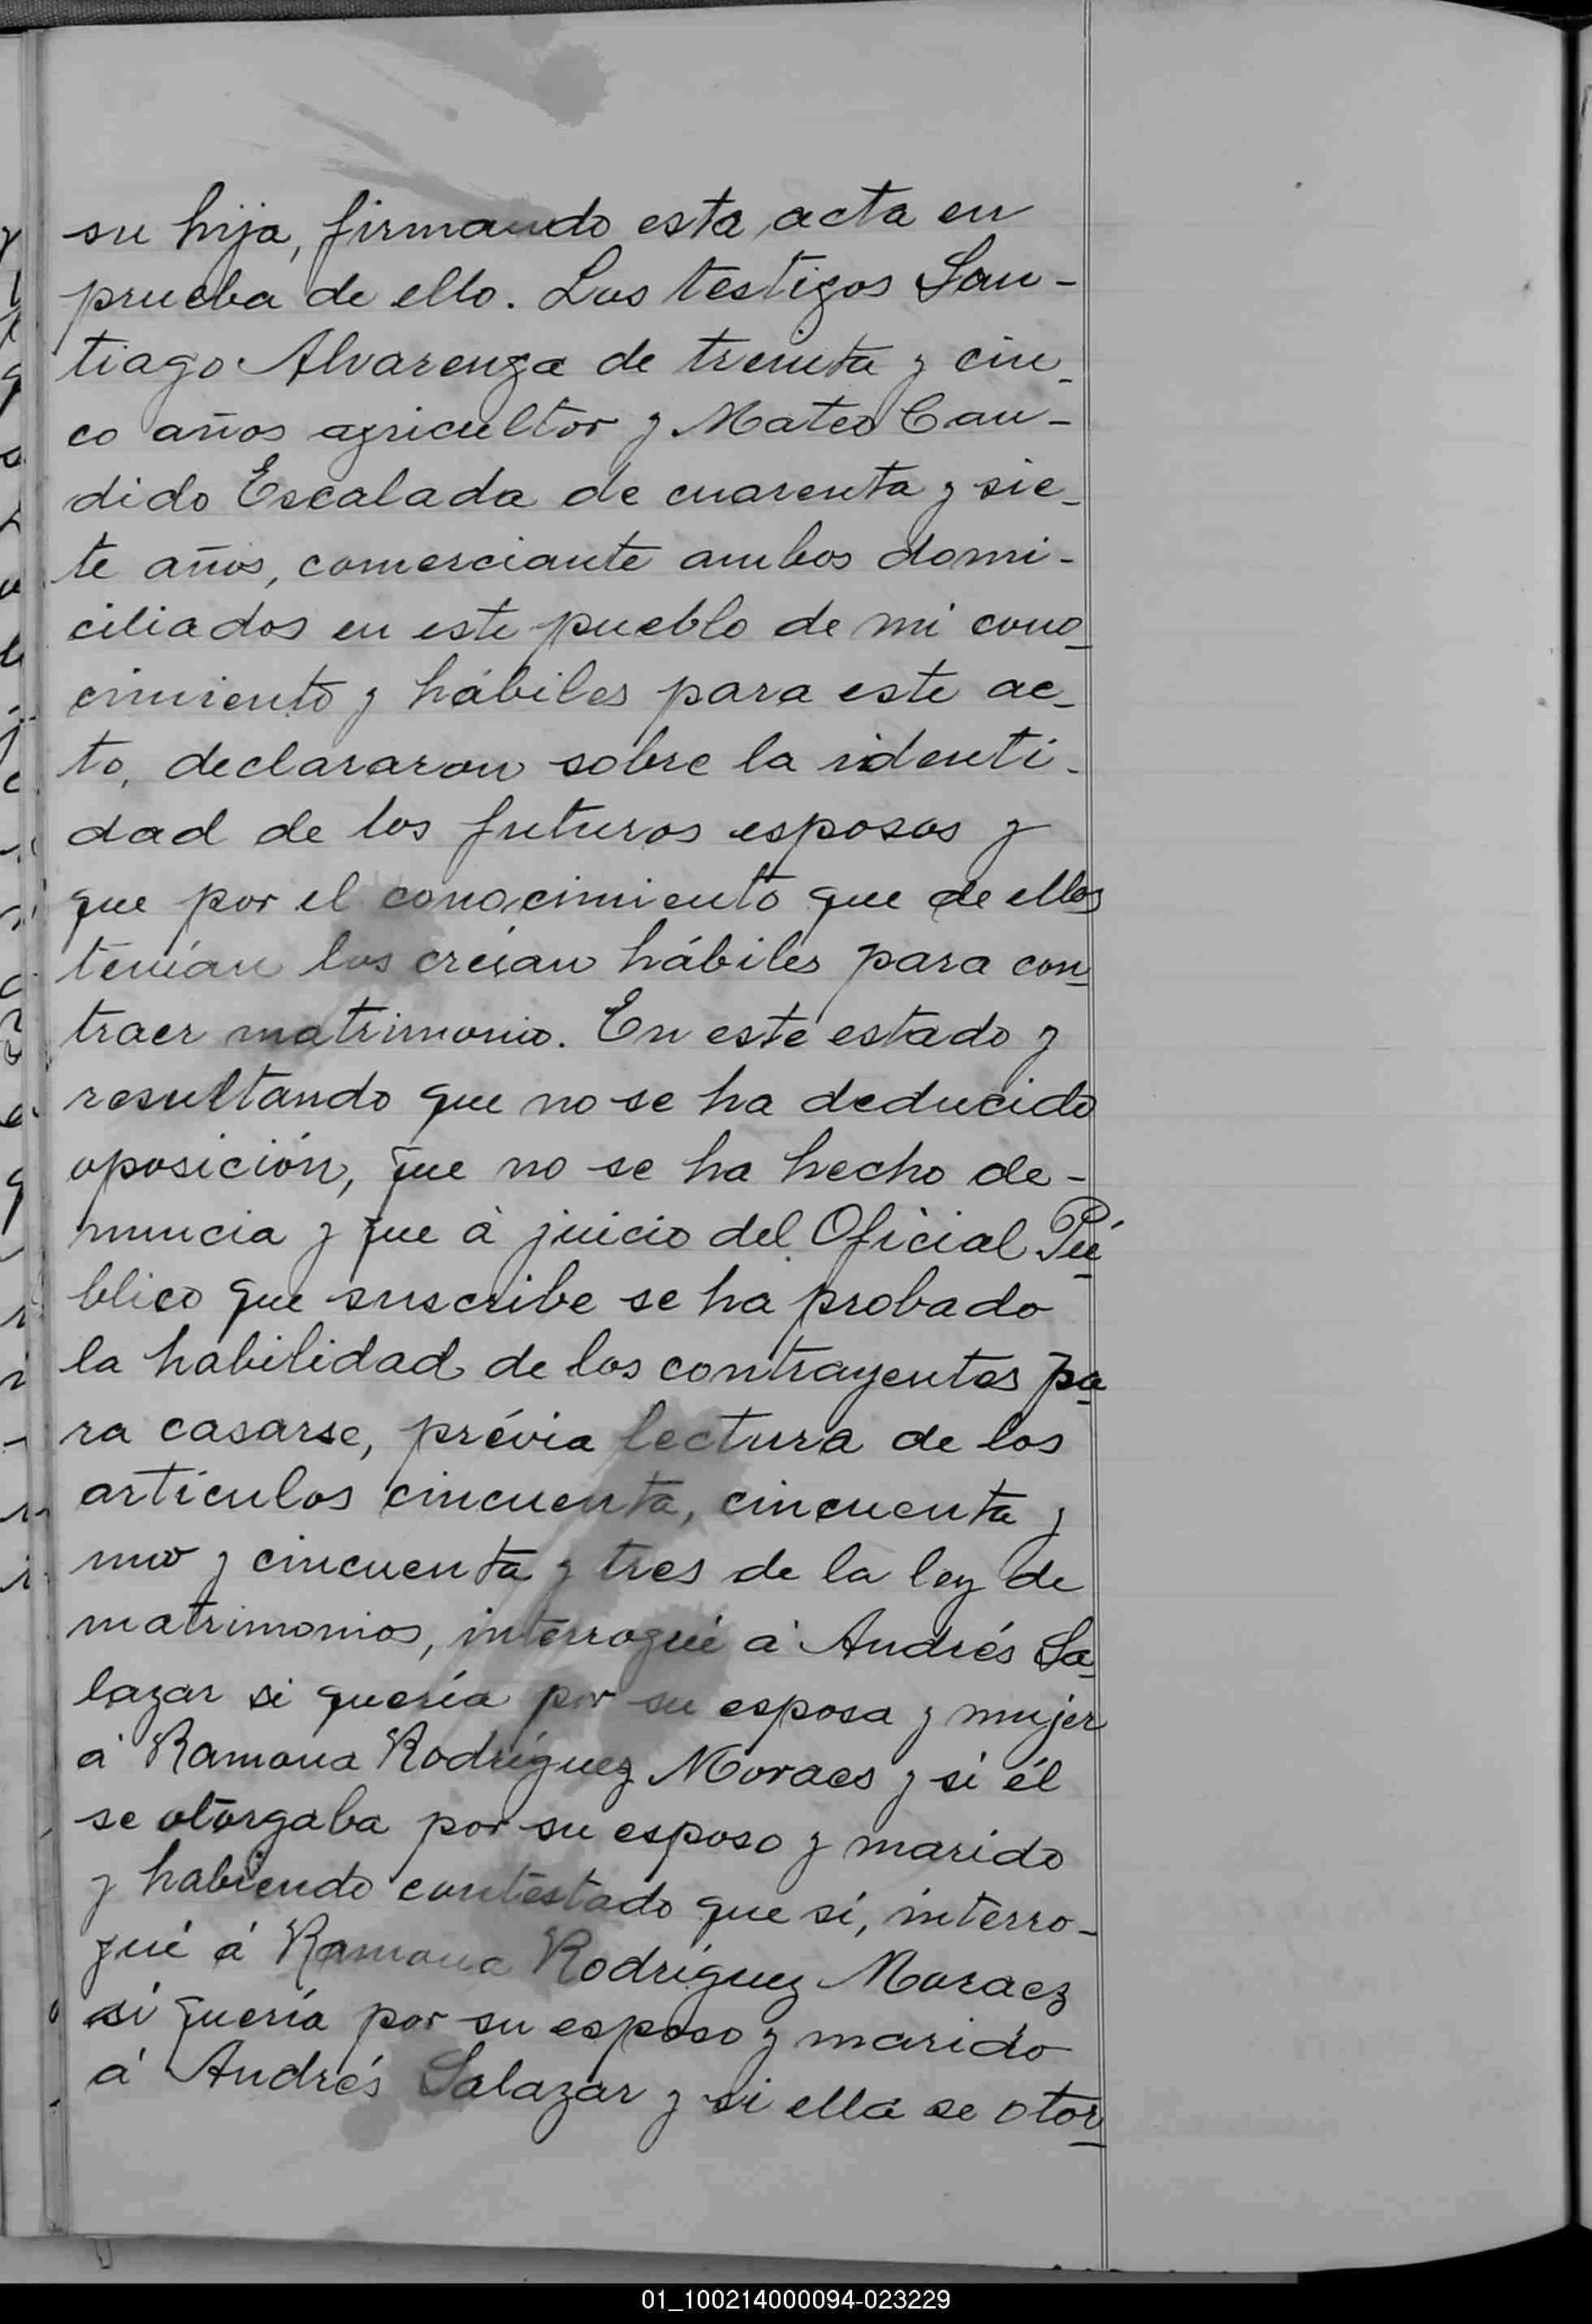 su hija, firmando esta acta en
prueba de ello. Los testigos San-
tiago Alvarenga de treinta y cin-
co años agricultor y Mateo Can-
dido Escalada de cuarenta y sie-
te años, comerciante ambos domi-
ciliados en este pueblo de mi cono-
cimiento y hábiles para este ac-
to, declararon sobre la identi-
dad de los futuros esposos y
que por el conocimiento que de ellos
tenían los creían hábiles para con-
traer matrimonio. En este estado y
resultando que no se ha deducido
oposición, que no se ha hecho de-
nuncia y que à juicio del Oficial Pú-
blico que suscribe se ha probado
la habilidad de los contrayentes pa-
ra casarse, prévia lectura de los
artículos cincuenta, cincuenta y
uno y cincuenta y tres de la ley de
matrimonios, interrogué á Andrés Sa-
lazar si quería por su esposa y mujer
á Ramona Rodríguez Moraes y si él
se otorgaba por su esposo y marido
y habiendo contestado que sí, interro-
gué á Ramona Rodríguez Moraez
si quería por su esposo y marido
á Andrés Salazar y si ella se otor-
01_100214000094-023229